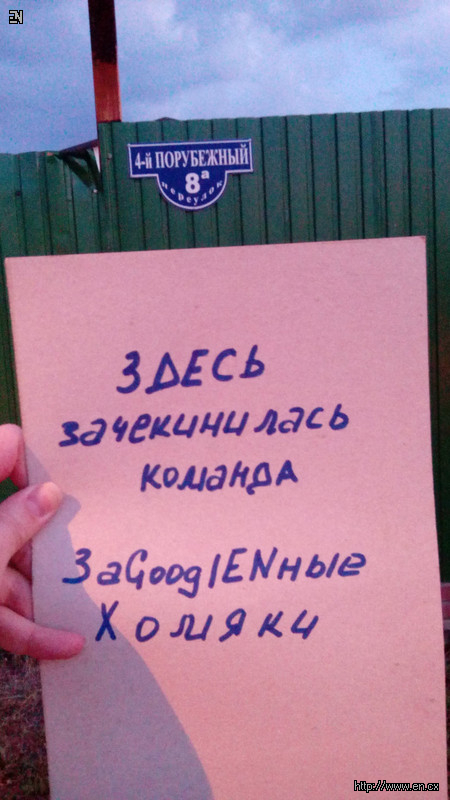 EN
4-й ПОРУБЕЖНЫЙ
8а
переулок
ЗДЕСЬ
зачекинилась
команда
ЗаGooglENные
Хомяки
http://www.en.cx